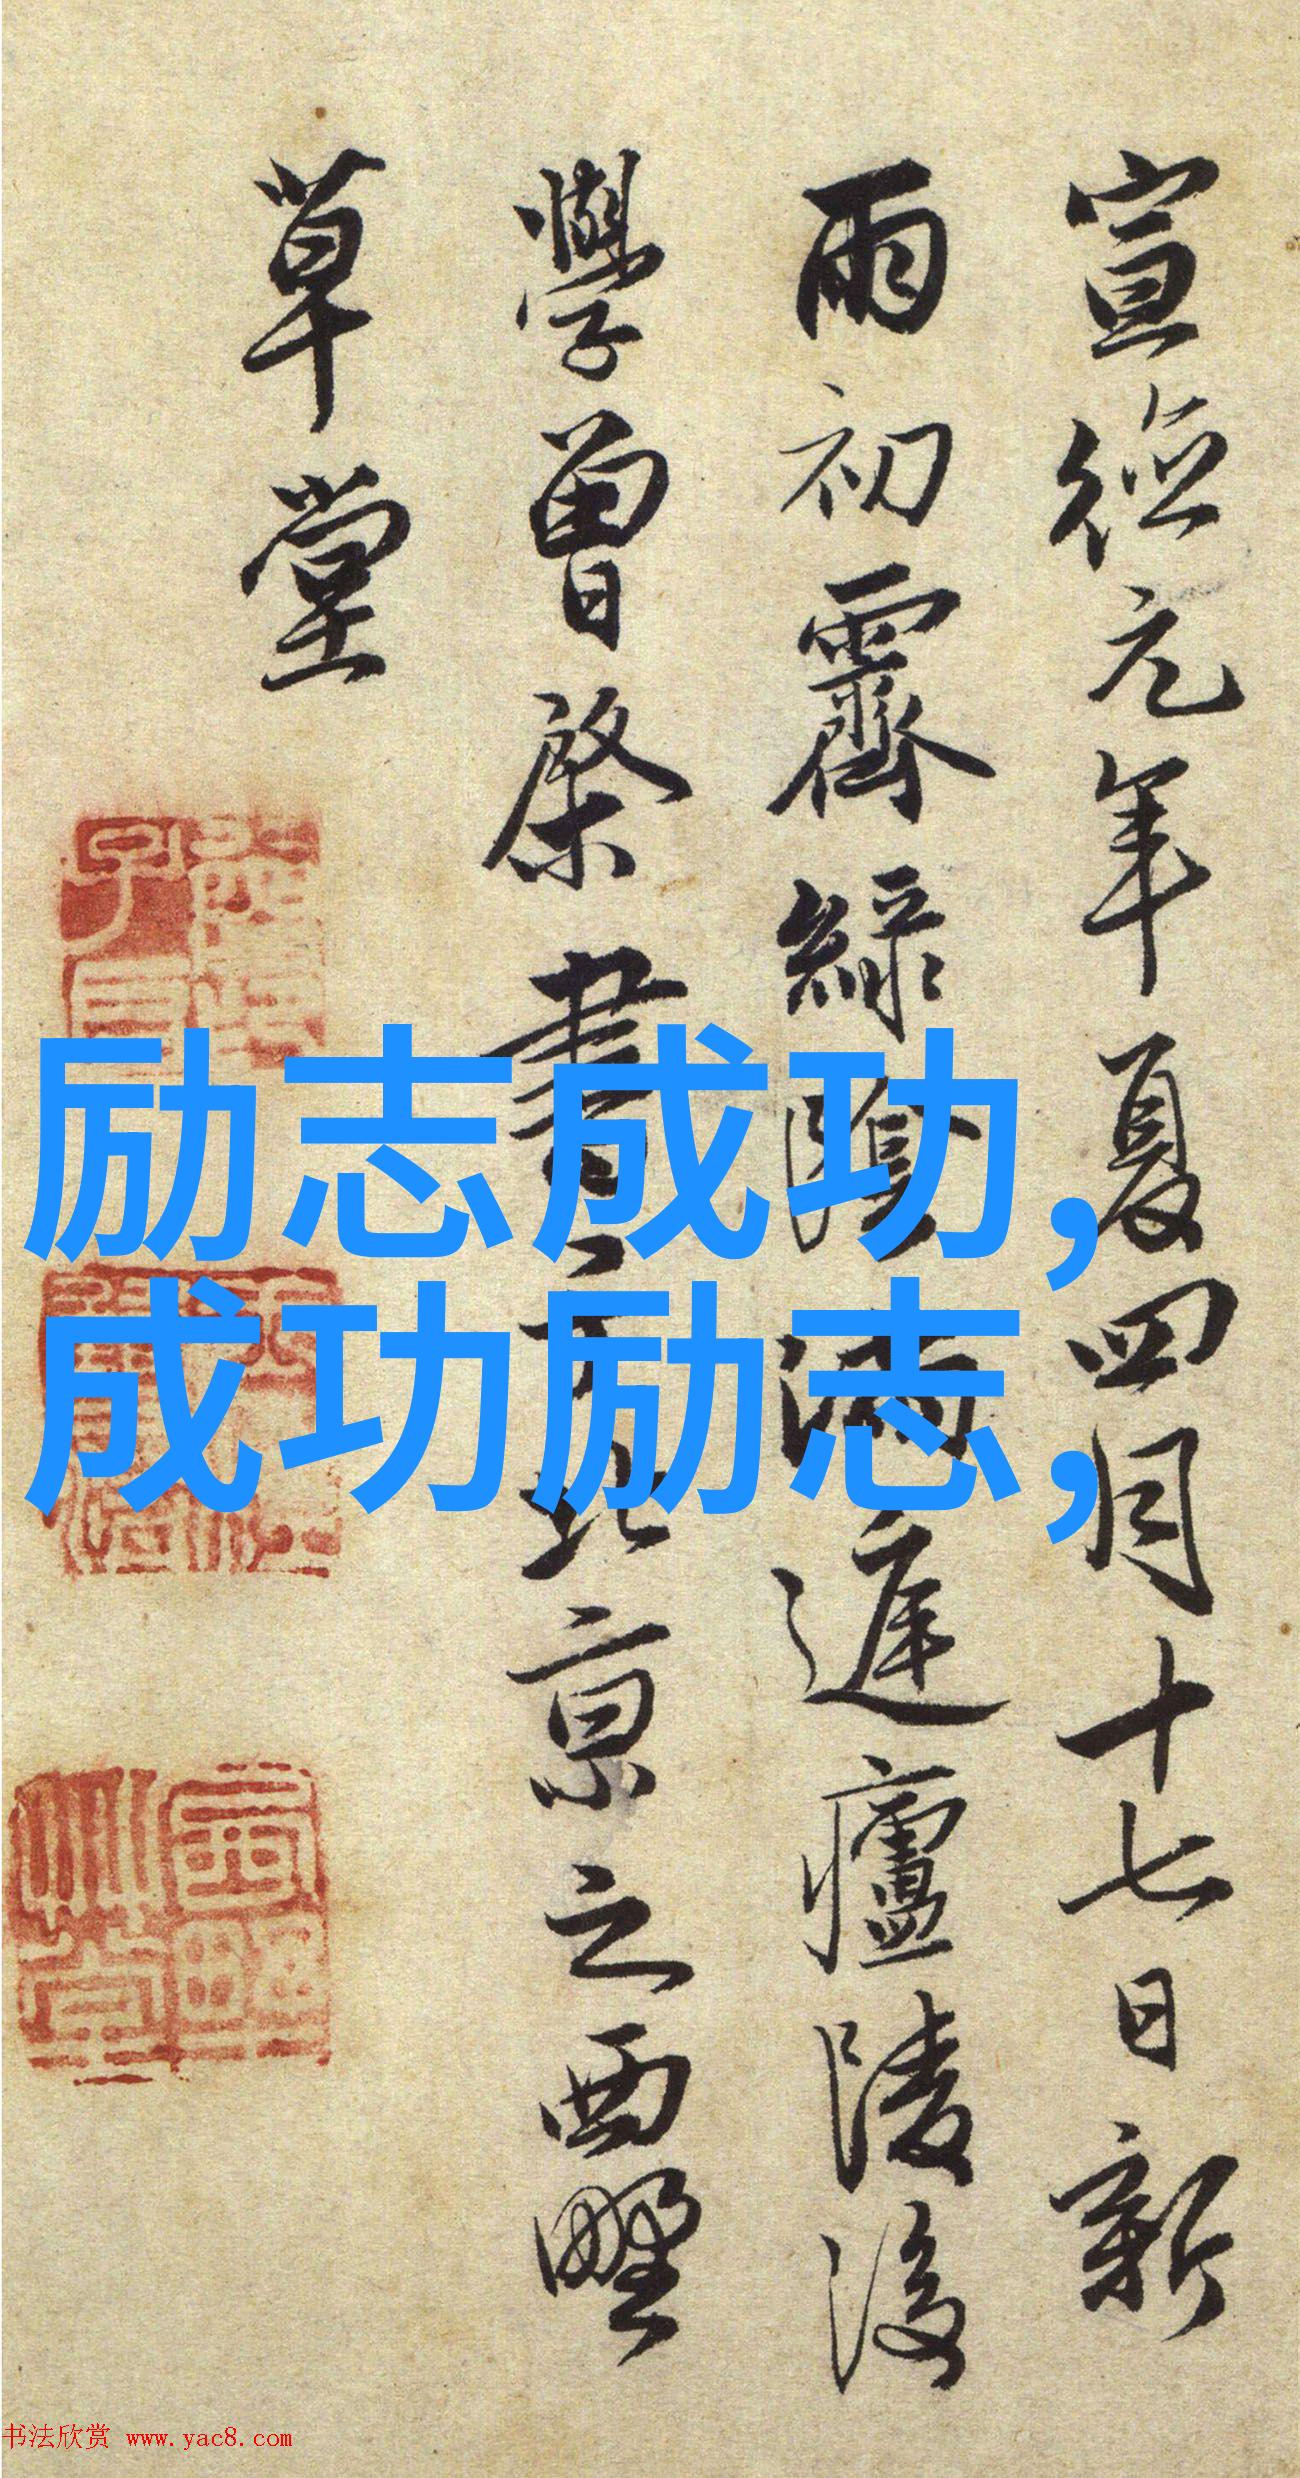 宣德元年夏四月十七日新
雨初霽綠陰滿庭廬陵後
學曾棨書于北京之西墅
草堂
励志成功,
成功励志,
书法欣赏 www.yac8.com